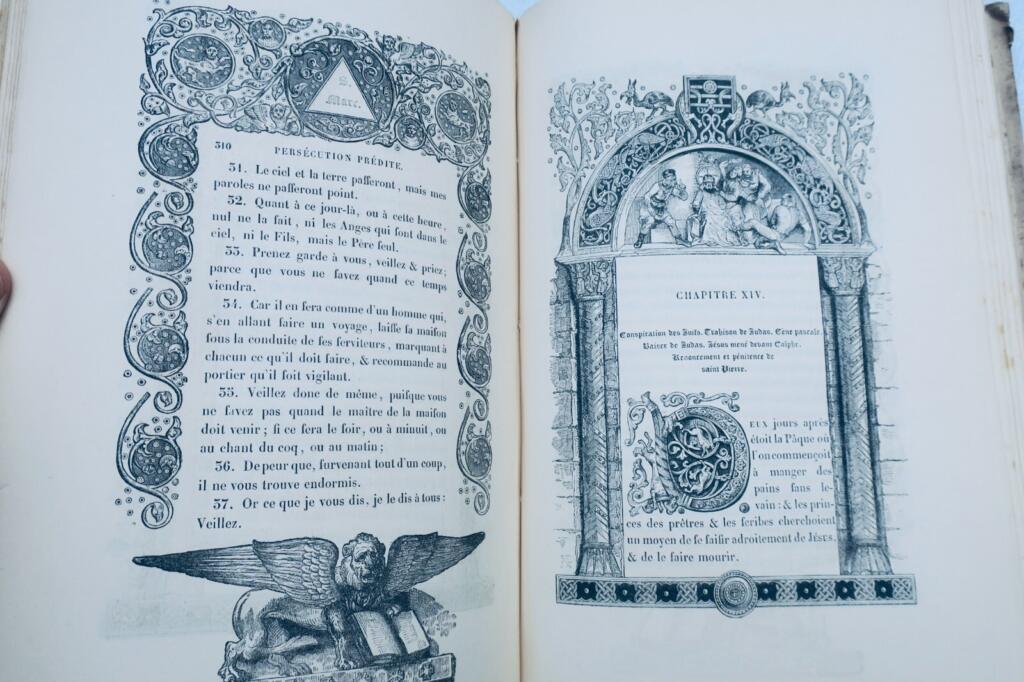 S.
Marc.
310
PERSÉCUTION PRÉDITE.
31. Le ciel et la terre paſſeront, mais mes
paroles ne paſſeront point.
32. Quant à ce jour-là, ou à cette heure,
nul ne la ſait, ni les Anges qui ſont dans le
ciel, ni le Fils, mais le Père ſeul.
33. Prenez garde à vous, veillez & priez;
parce que vous ne ſavez quand ce temps
viendra.
34. Car il en ſera comme d'un homme qui,
s'en allant faire un voyage, laiſſe ſa maiſon
ſous la conduite de ſes ſerviteurs, marquant à
chacun ce qu'il doit faire, & recommande au
portier qu'il ſoit vigilant.
35. Veillez donc de même, puiſque vous
ne ſavez pas quand le maître de la maiſon
doit venir; ſi ce ſera le ſoir, ou à minuit, ou
au chant du coq, ou au matin;
36. De peur que, ſurvenant tout d'un coup,
il ne vous trouve endormis.
37. Or ce que je vous dis, je le dis à tous:
Veillez.
CHAPITRE XIV.
Conspiration des Juifs. Trahison de Judas. Cène pascale.
Baiser de Judas. Jésus mené devant Caïphe.
Renoncement et pénitence de
saint Pierre.
DEUX jours après
étoit la Pâque où
l'on commençoit
à manger des
pains ſans le-
vain: & les prin-
ces des prêtres & les ſcribes cherchoient
un moyen de ſe ſaiſir adroitement de JÉSUS,
& de le faire mourir.